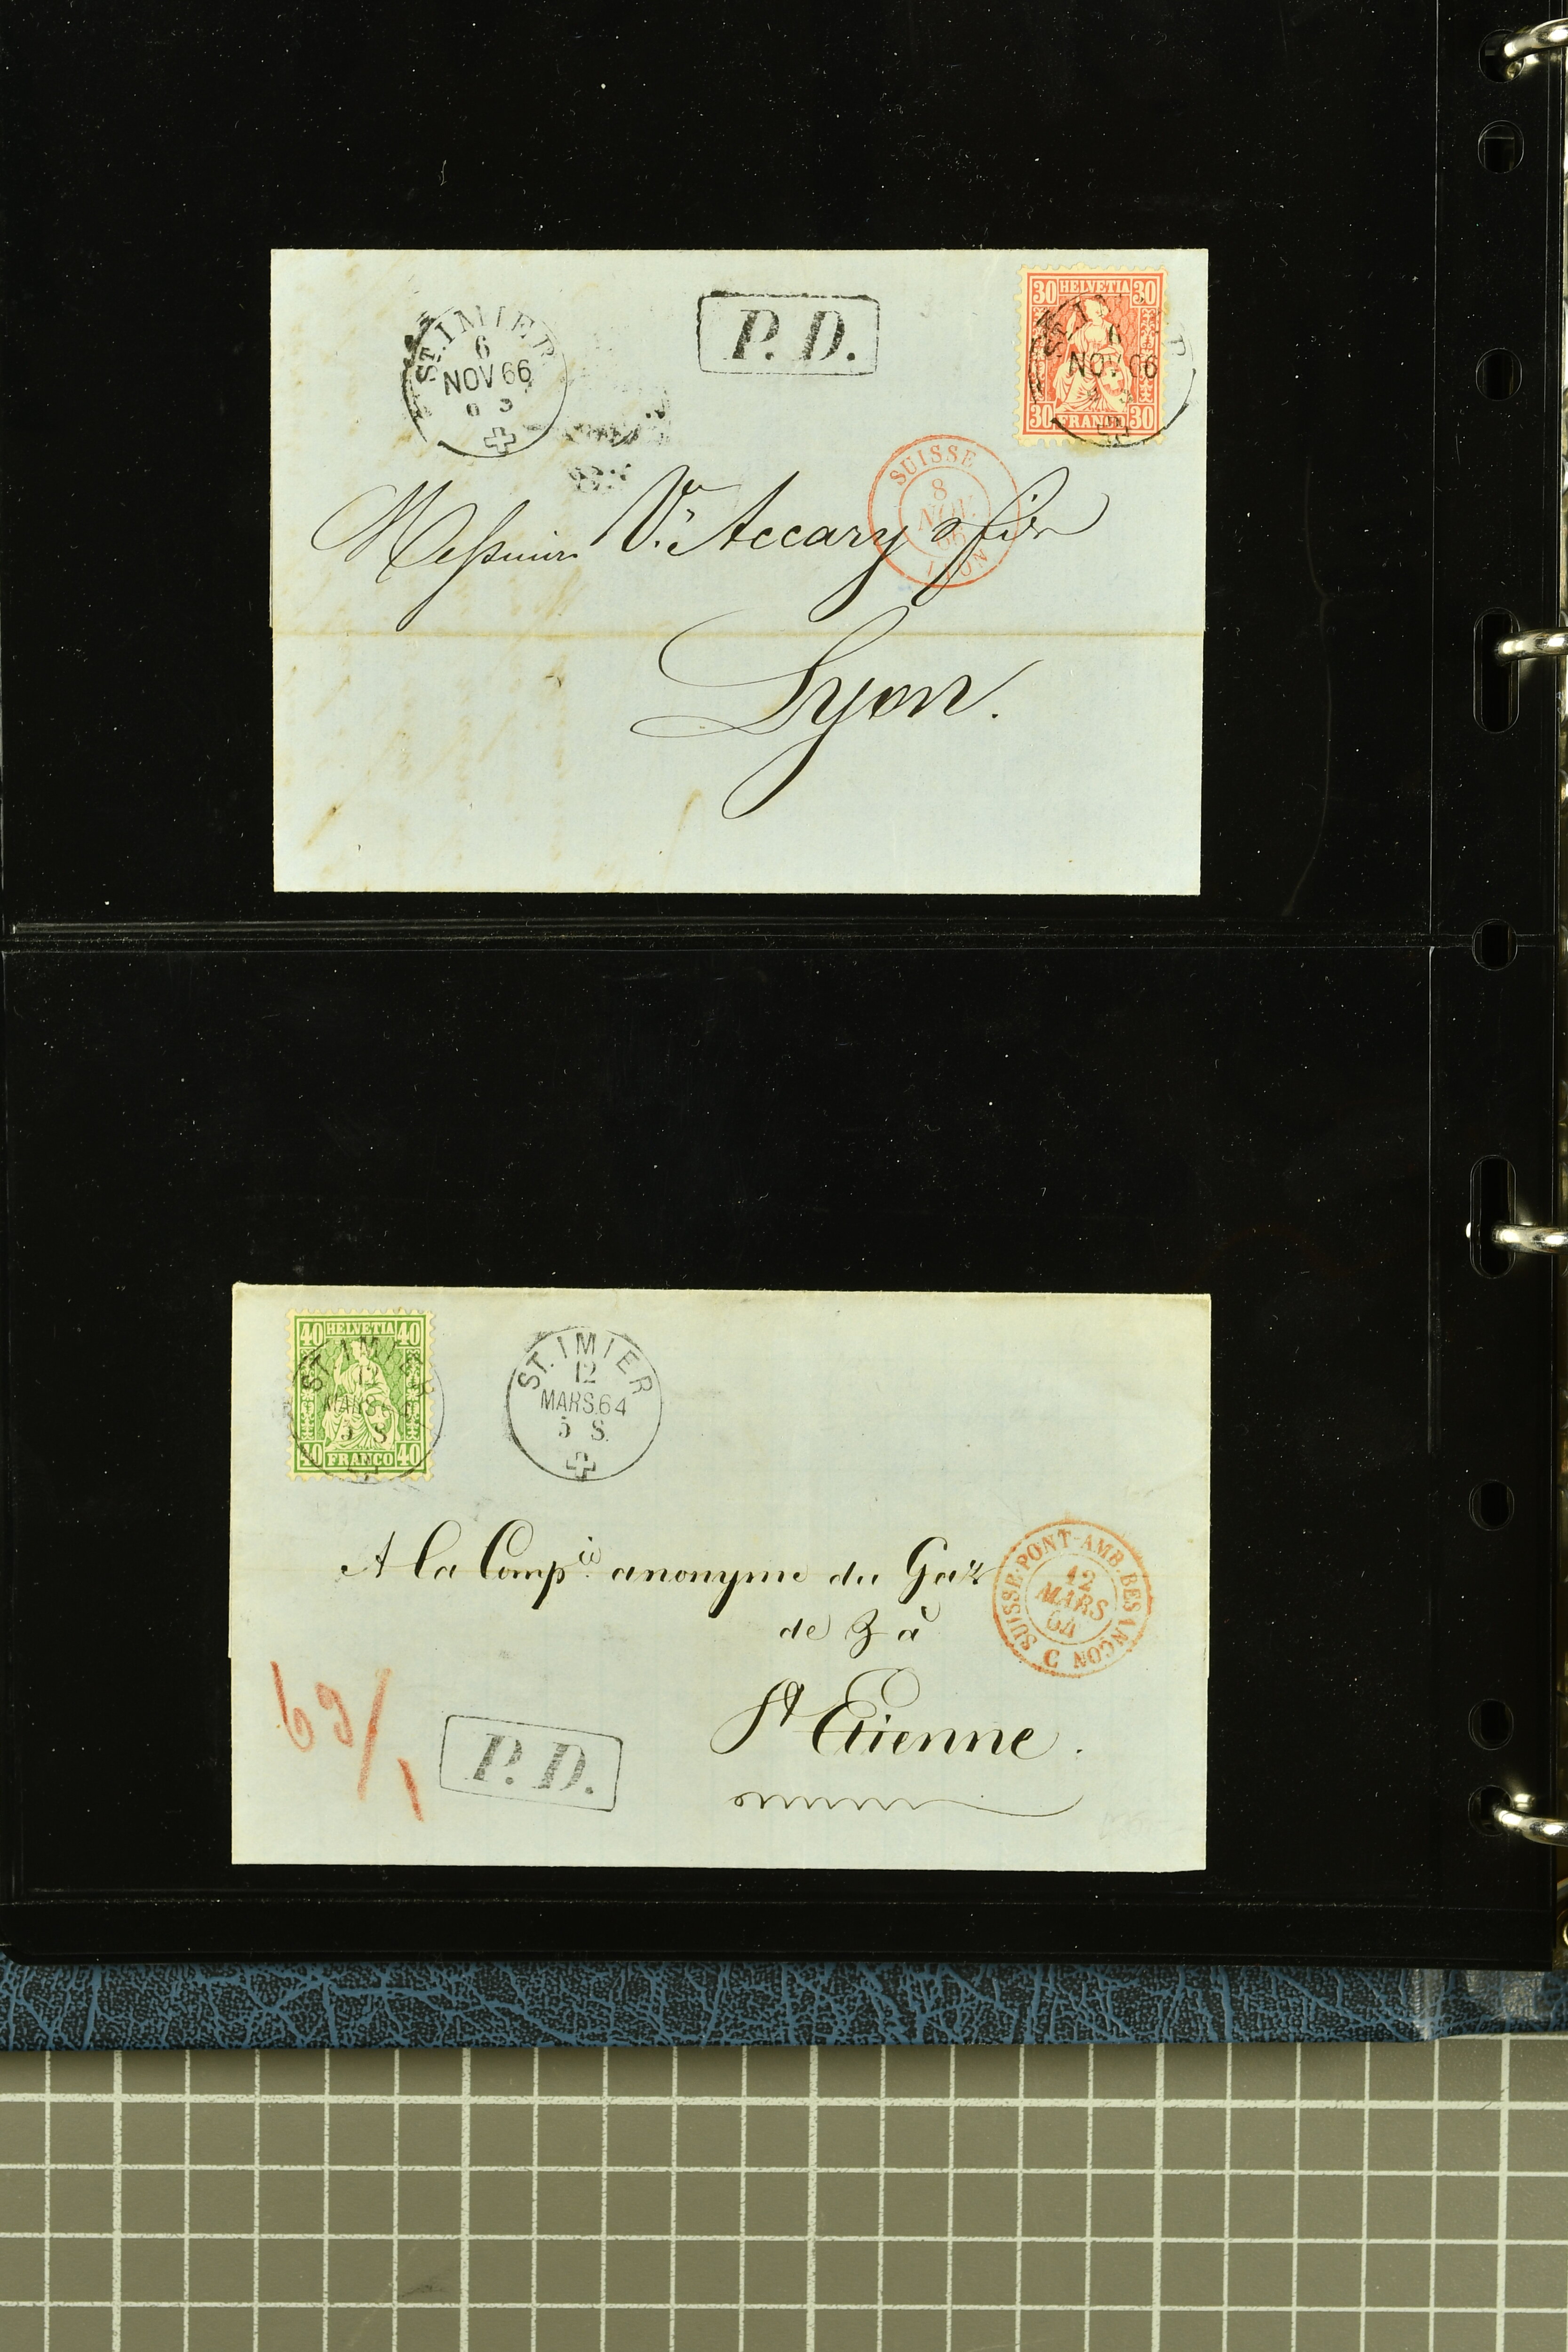 ST. IMIER
6
NOV 66
P. D.
30 HELVETIA 30
ST. IMIER
6
NOV 66
30 FRANCO 30
SUISSE
8
NOV.
66
LYON
Messieurs Vve Accary & fils
Lyon.
40 HELVETIA 40
ST. IMIER
12
MARS 64
5 S.
40 FRANCO 40
ST. IMIER
12
MARS.64
5 S.
A la Compie anonyme du Gaz
de & à
St Etienne.
SUISSE-PONT-AMB. BESANCON C
12
MARS
64
P. D.